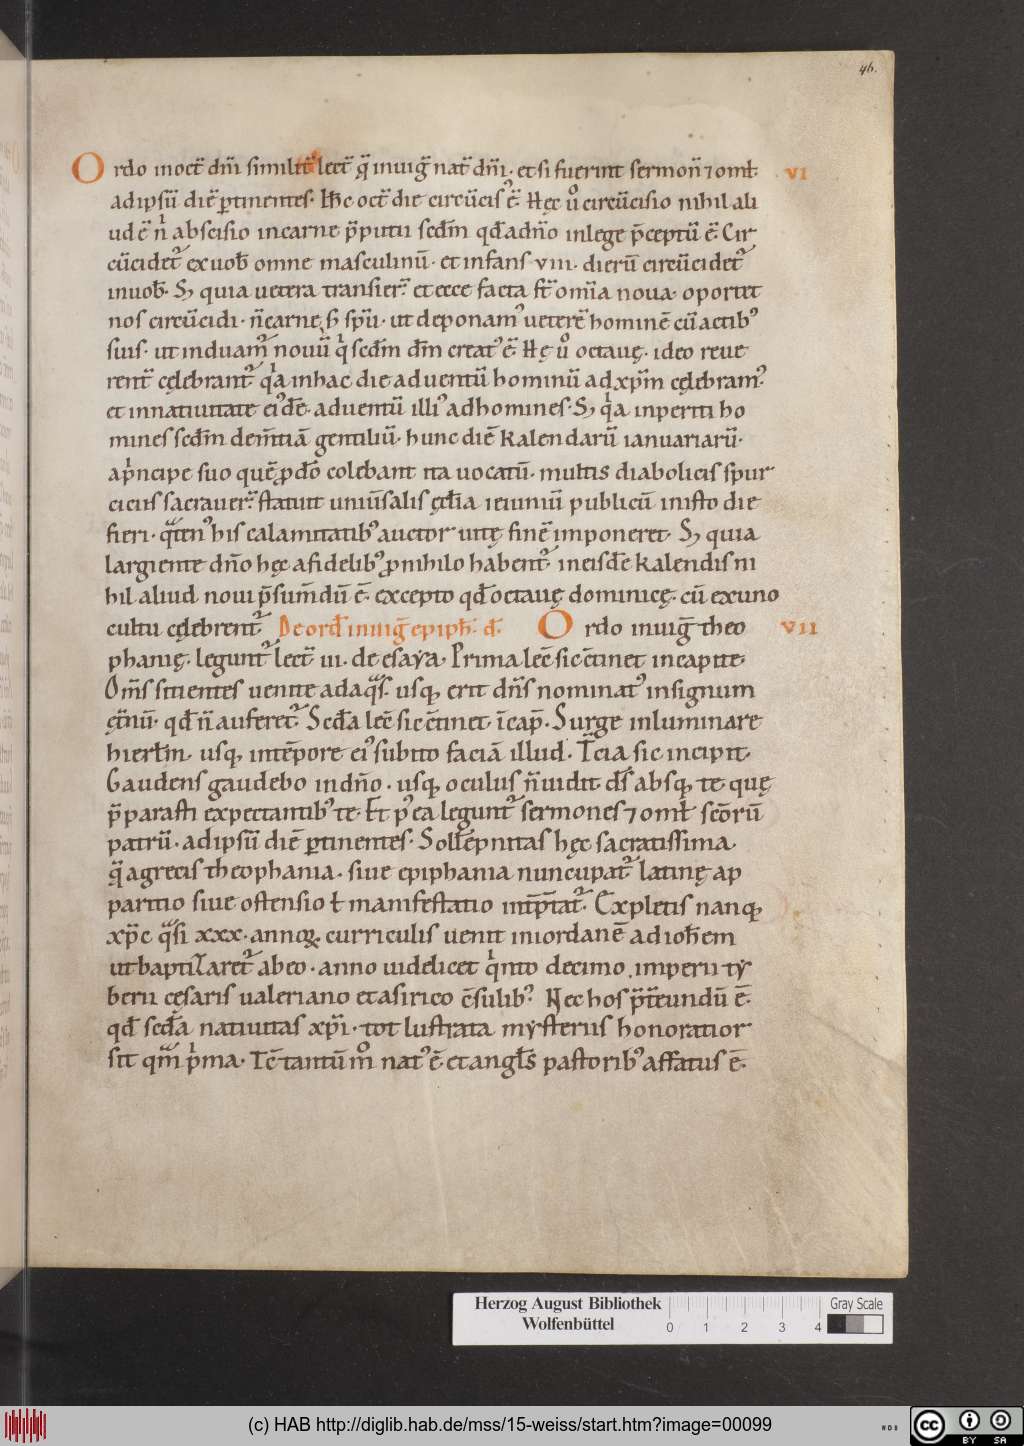 46.
Ordo in oct̄ dn̄i similit̄ lect̄ q̄ in uig̅ nat̄ dn̄i· et si fuerint sermon̄ ⁊ omł VI
ad ipsū diē ꝑtinentes· In hc̄ oct̄ die circūcisꝰ ē· Hęc u̾o circūcisio nihil ali
ud ē n̄ abscisio in carne p̄putii scd̄m qd̄ adn̄o in lege p̄ceptū ē· Cir
cūcidet᷑ ex uob̄ omne masculinū· et infans VIII· dierū circūcidet᷑
in uob̄· Sꝫ quia uetera transier᷑ et ecce facta st̄ om̄ia noua· oportet
nos circūcidi· n̄ carne, s; sp̄u· ut deponamꝰ ueterē hominē cū actibꝰ
suis· ut induamꝰ nouū qͥ scd̄m dm̄ creatꝰ ē· Hę u̾o octauę· ideo reue
rent̄ cęlebrant᷑ qͥa in hac die aduentū hominū ad xp̄m cęlebramꝰ·
et in natiuitate eiꝰdē aduentū illiꝰ ad homines· Sꝫ qͥa inperiti ho
mines scd̄m dem̄tiā gentiliū· hunc diē kalendarū ianuariarū·
a pͥncipe suo quē ꝓ dō colebant ita uocatū· multis diabolicis spur
ciciis sacrauer᷑ statuit uniūsalis ęcl̄ia ieiuniū publicū in isto die
fieri· qͣtenꝰ his calamitatibꝰ auctor uitę finē imponeret· Sꝫ quia
largiente dn̄o hęc a fidelibꝰ ꝓ nihilo habent᷑ in eisdē kalendis ni
hil aliud noui p̄sum̄dū ē· excepto qd̄ octauę dominicę· cū ex uno
cultu cęlebrent᷑ De ord̄ in uig̅ epiph̄· d̄· Ordo in uig̅ theo VII
phanię· legunt᷑ lect̄ III· de esaẏa· Prima lec̄ sic c̄tinet in capite·
Om̄s sitientes uenite ad aqͣs· usqꝫ erit dn̄s nominatꝰ in signum
ęt̄nū· qd̄ n̄ auferet᷑· Scd̄a lec̄ sic c̄tinet· ī cap̄· Surge inluminare
hierłm· usqꝫ in tēpore eiꝰ subito faciā illud· T̄cia sic incipit·
Gaudens gaudebo in dn̄o· usqꝫ oculus n̄ uidit ds̄ absqꝫ te· quę
p̄parasti expectantibꝰ te· Et pꝰea legunt᷑ sermones ⁊ omł scōrū
patrū· ad ipsū diē ꝑtinentes· Sollēpnitas hęc sacratissima·
q̄ a grecis theophania· siue epiphania nuncupat᷑ latinę ap
paritio siue ostensio ł manifestatio int̄p̄tat᷑· C̄xpletis nanqꝫ
xp̄c qͣsi xxx· annoꝝ curriculis uenit in iordanē ad ioh̄em
ut baptizaret᷑ ab eo· anno uidelicet qͥnto decimo imperii tẏ
berii cęsaris ualeriano et asirico c̄sulibꝰ Nec hos p̄t̄eundū ē·
qd̄ scd̄a natiuitas xp̄i· tot lustrata mẏsteriis honoratior
sit qͣm pͥma· Tc̄ tantūm̊ natꝰ ē· et angl̄s pastoribꝰ affatus ē·
Herzog August Bibliothek
Wolfenbüttel
0 1 2 3 4
Gray Scale
(c) HAB http://diglib.hab.de/mss/15-weiss/start.htm?image=00099
cc BY SA